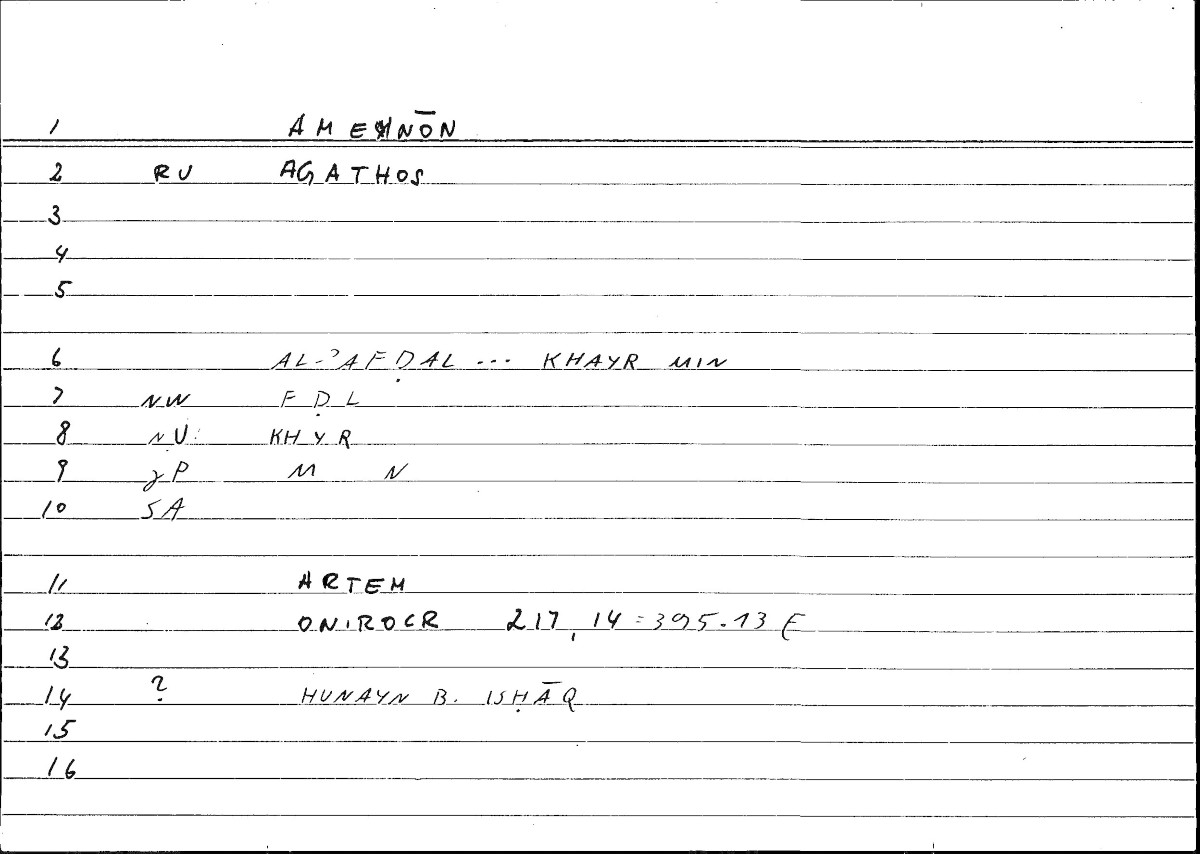 1 AMEINŌN
2 RU AGATHOS
3
4
5
6 AL-ʾAFḌAL ... KHAYR MIN
7 NW FḌL
8 NU KHYR
9 γP M N
10 SA
11 ARTEM
12 ONIROCR 217,14 = 395.13 F
13
14 ? HUNAYN B. ISḤĀQ
15
16